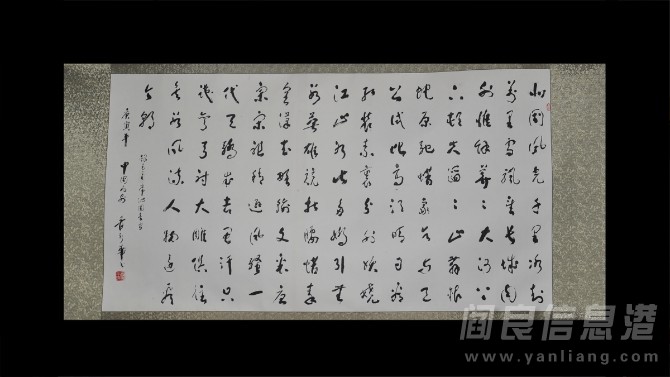 北國风光千里冰封
万里雪飘望长城内
外惟馀莽〻大河上
下顿失滔〻山舞银
蛇原驰蜡象欲与天
公试比高须晴日看
红装素裹分外妖娆
江山如此多娇引无
数英雄竞折腰惜秦
皇汉武略输文采唐
宗宋祖稍逊风骚一
代天骄成吉思汗只
识弯弓射大雕俱往
矣数风流人物还看
今朝
庚寅年
中国西安
阎良信息港
www.yanliang.com